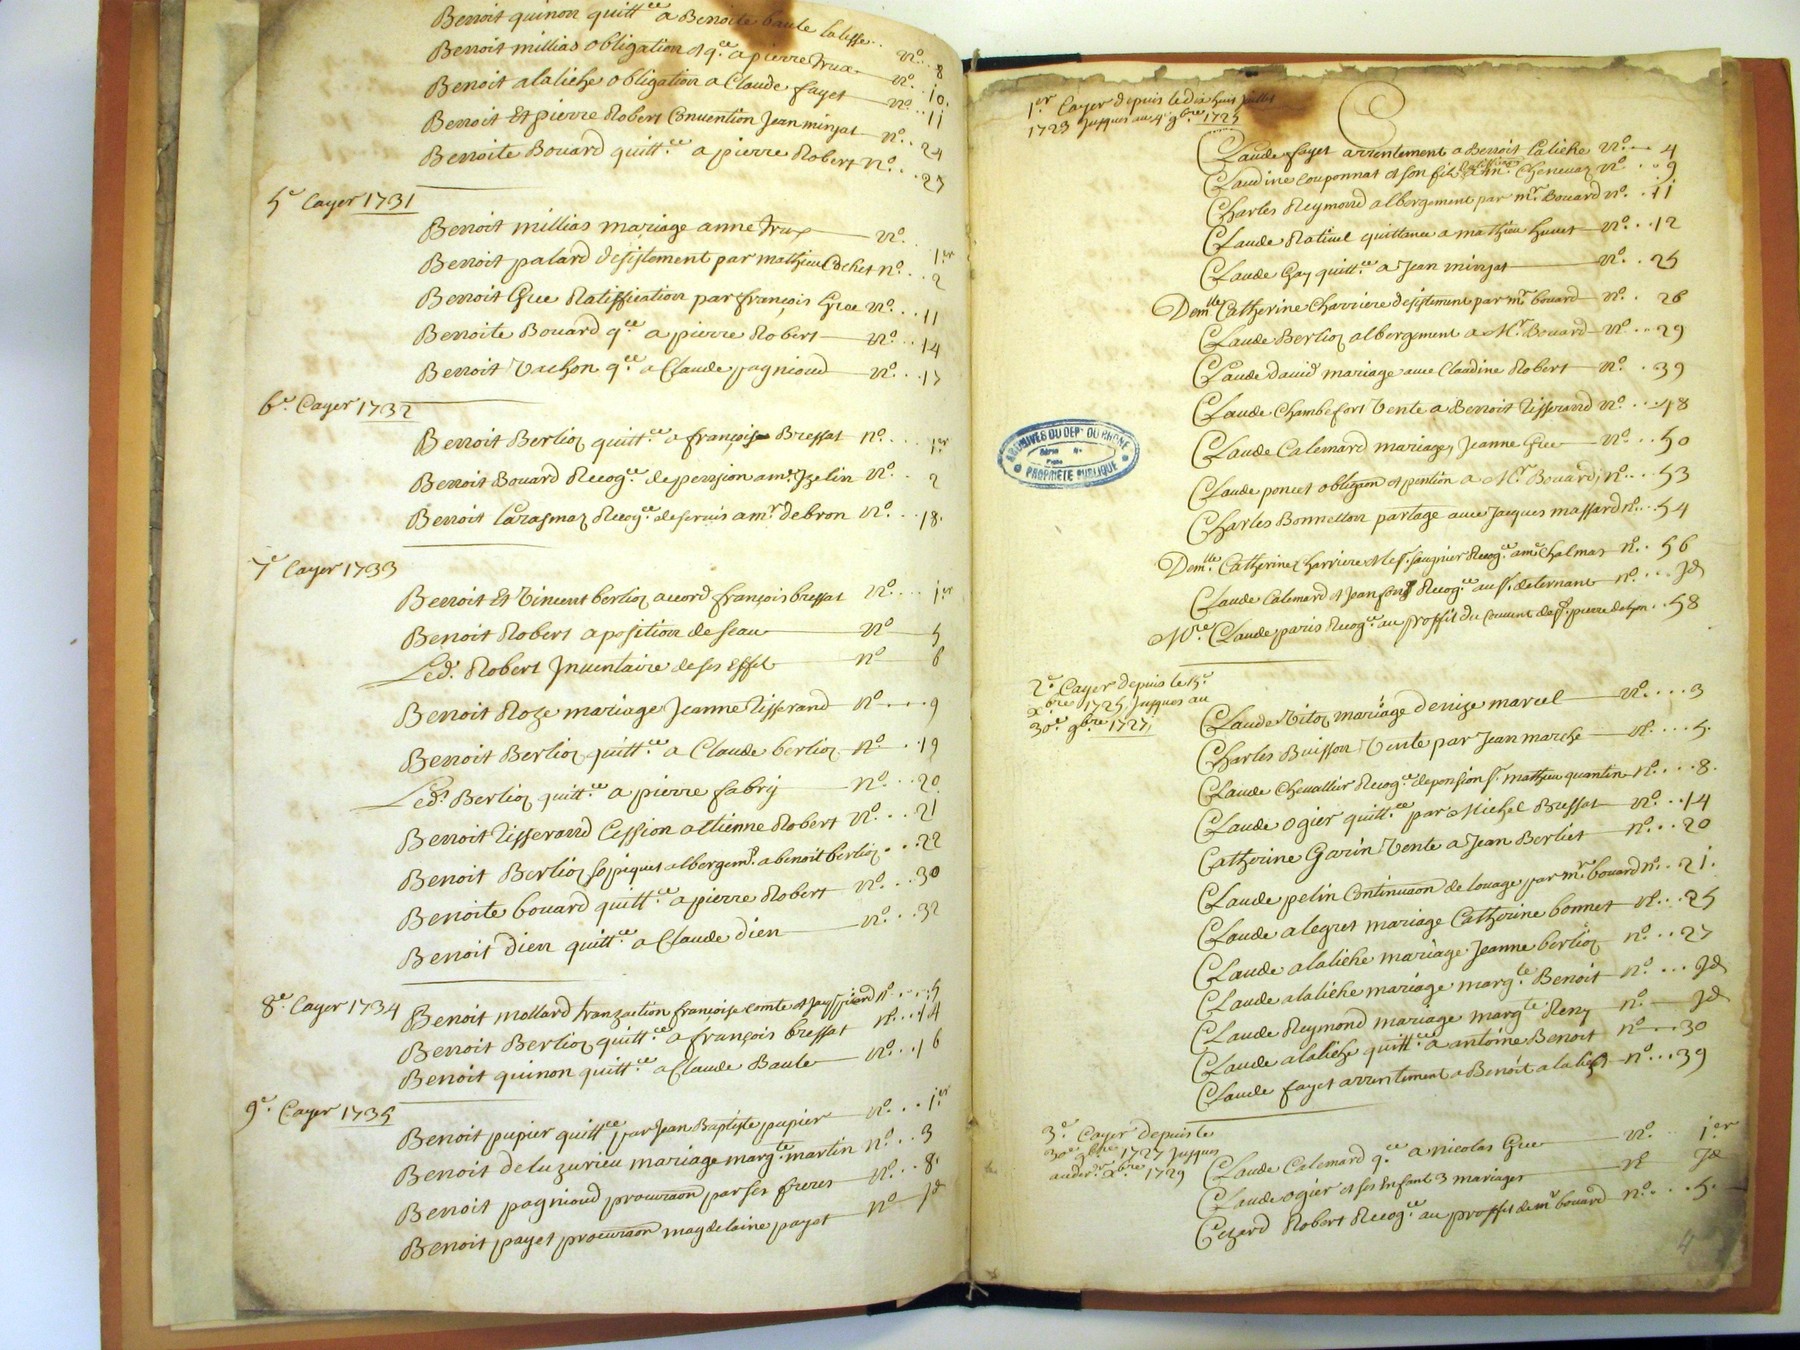 Benoit quinon quitt.ce a Benoite baule lalisse.. n.o .. 8
Benoit millias obligation et q.ce a pierre trux n.o .. 10.
Benoit alaliche obligation a Claude fayet n.o .. 11
Benoit Et pierre Robert Convention Jean minjat n.o .. 24
Benoite Bouard quitt.ce a pierre Robert n.o .. 27
5e Cayer 1731
Benoit millias mariage anne trux n.o . 1er
Benoit palard desistement par mathieu Cochet n.o .. 2
Benoit Gue Ratiffication par françois Gue n.o ... 11
Benoite Bouard q.ce a pierre Robert n.o .. 14
Benoit Vachon q.ce a Claude pagnioud n.o .. 17
6e. Cayer 1732
Benoit Berlioz quitt.ce a françoise Bressat n.o .... 1er
Benoit Bouard Recog.ce de pension a mr Izelin n.o . 2
Benoit Carasmaz Recog.ce de servis a mr debron n.o .. 18.
7e Cayer 1733
Benoit Et Vincent berlioz accord françois bressat n.o ... 1er
Benoit Robert aposition de seau n.o 5
Led. Robert Inventaire de ses effet n.o 6
Benoit Roze mariage Jeanne Tisserand n.o .... 9
Benoit Berlioz quitt.ce a Claude berlioz n.o .. 19
Led. Berlioz quitt.ce a pierre fabry n.o .. 20
Benoit Tisserand Cession a Etienne Robert n.o ... 21
Benoit Berlioz albergem.t a benoit berlioz . .. 22
Benoite bouard quitt.ce a pierre Robert n.o ... 30
Benoit dien quitt.ce a Claude dien n.o ... 32
8e. Cayer 1734
Benoit mollard tranzaction françoise comte et n.o .... 5
Benoit Berlioz quitt.ce a françois bressat n.o ... 14
Benoit quinon quitt.ce a Claude Baule n.o .. 16
9e. Cayer 1735
Benoit pupier quitt.ce par Jean Baptiste pupier n.o ... 1er
Benoit deluzurieu mariage marg.te martin n.o .. 3
Benoit pagnioud procuraon par ses freres n.o .. 8.
Benoit payet procuraon magdelaine payet n.o Id
1er Cayer depuis le dix huit Juillet
1723 Jusques au 4e gbre 1725
Claude fayet arrentement a Benoit laliche n.o .. 4
Claudine couponnat et son fils a Chenevaz n.o .. 9
Charles Reymond albergement par mr. Bouard n.o .. 11
Claude Ratinel quittance a mathieu huvet n.o ... 12
Claude Gay quitt.ce a Jean minjat n.o .. 25
Dem.lle Catherine Charriere desistement par mr. bouard n.o . 26
Claude Berlioz albergement a Mr. Bouard n.o .. 29
Claude david mariage avec Claudine Robert n.o . 39
Claude Chambefort Vente a Benoit Tisserand n.o ... 48
Claude Calemard mariage, Jeanne Gue n.o ... 50
Claude poncet obligaon et pention a Mr. Bouard; n.o ... 53
Charles Bonnetton partage avec Jacques massard n.o ... 54
Dem.lle Catherine Charriere et le s.r saugnier Recog.ce a mr Chalmas n.o .. 56
Claude Calemard et Jean Recog.ce au s.r de ternant n.o ... Id
M.re Claude paris Recog.ce au proffit du Couvent de s.t pierre de lyon .. 58
2e. Cayer depuis le 15e.
xbre 1725 Jusques au
30e. gbre 1727
Claude Vitoz mariage denize marcel n.o .... 3
Charles Buisson Vente par Jean marche n.o .... 5.
Claude Chevallier Recog.ce de pension s.r mathieu quantin n.o .... 8.
Claude Ogier quitt.ce par Michel Bressat n.o .. 14
Catherine Garin Vente a Jean Berliet n.o .. 20
Claude pelin Continuaon de louage par mr bouard n.o .. 21.
Claude alegret mariage Catherine bonnet n.o .. 25
Claude alaliche mariage Jeanne berlioz n.o .. 27
Claude alaliche mariage marg.te Benoit n.o ... Id
Claude Reymond mariage marg.te Reny n.o Id
Claude alaliche quitt.ce a antoine Benoit n.o .... 30
Claude fayet arrentement a Benoit alaliche n.o ... 39
3e. Cayer depuis le
30e gbre 1727 Jusques
au der.r xbre 1729
Claude Calemard q.ce a nicolas Gue n.o . 1er
Claude ogier et ses Enfant 3 mariages n.o Id
Cezard Robert Recog.ce au proffit de mr bouard n.o ... 5.
ARCHIVES DU DEPt DU RHONE
Série
PROPRIÉTÉ PUBLIQUE
4